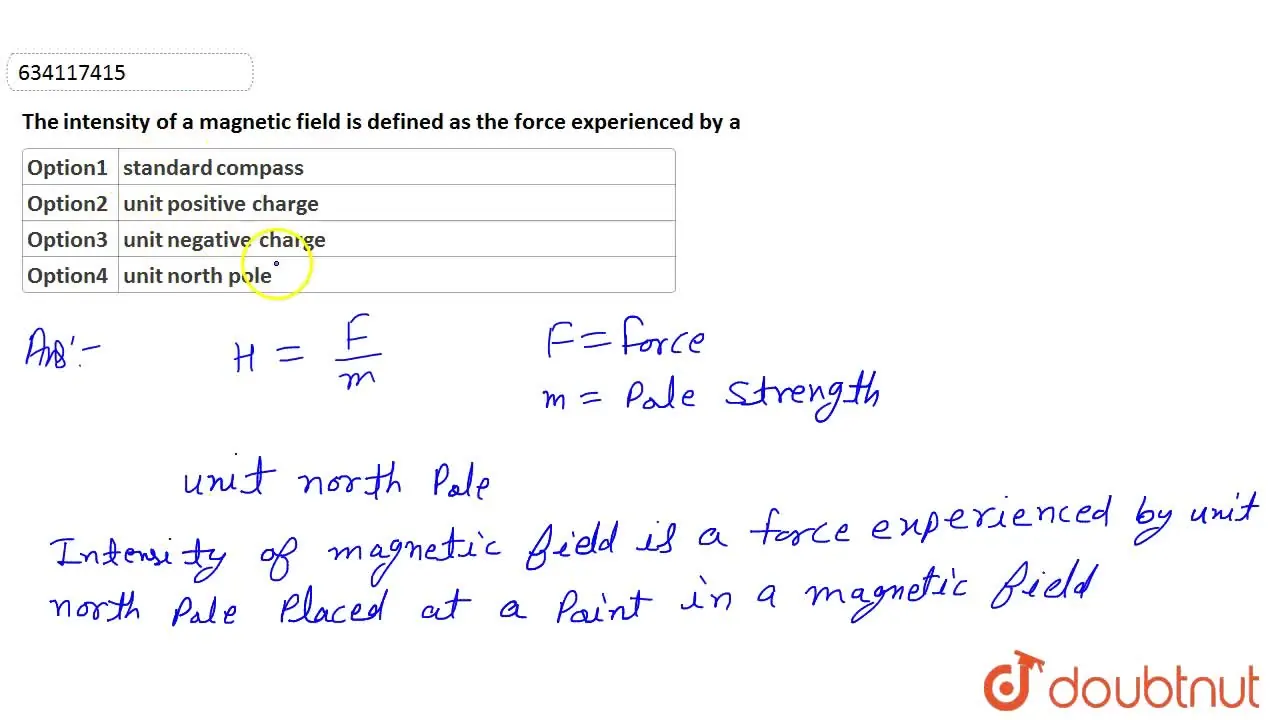 634117415
The intensity of a magnetic field is defined as the force experienced by a
Option1 standard compass
Option2 unit positive charge
Option3 unit negative charge
Option4 unit north pole
Ans:- H = F/m F = force
m = Pole strength
unit north Pole
Intensity of magnetic field is a force experienced by unit
north Pole Placed at a Point in a magnetic field
doubtnut